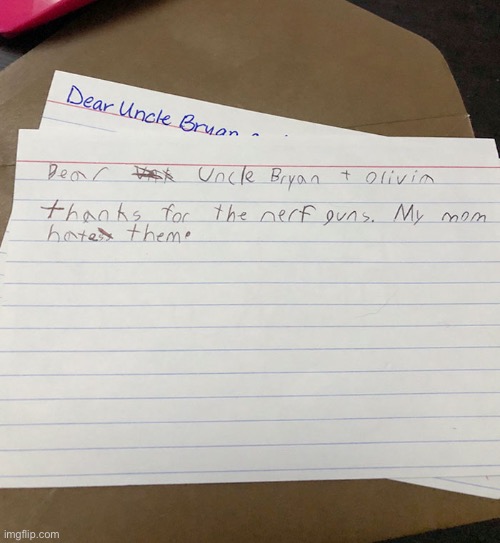 Dear Uncle Bryan
Dear Uncle Bryan + Olivia
Thanks for the nerf guns. My mom
hates them.
imgflip.com